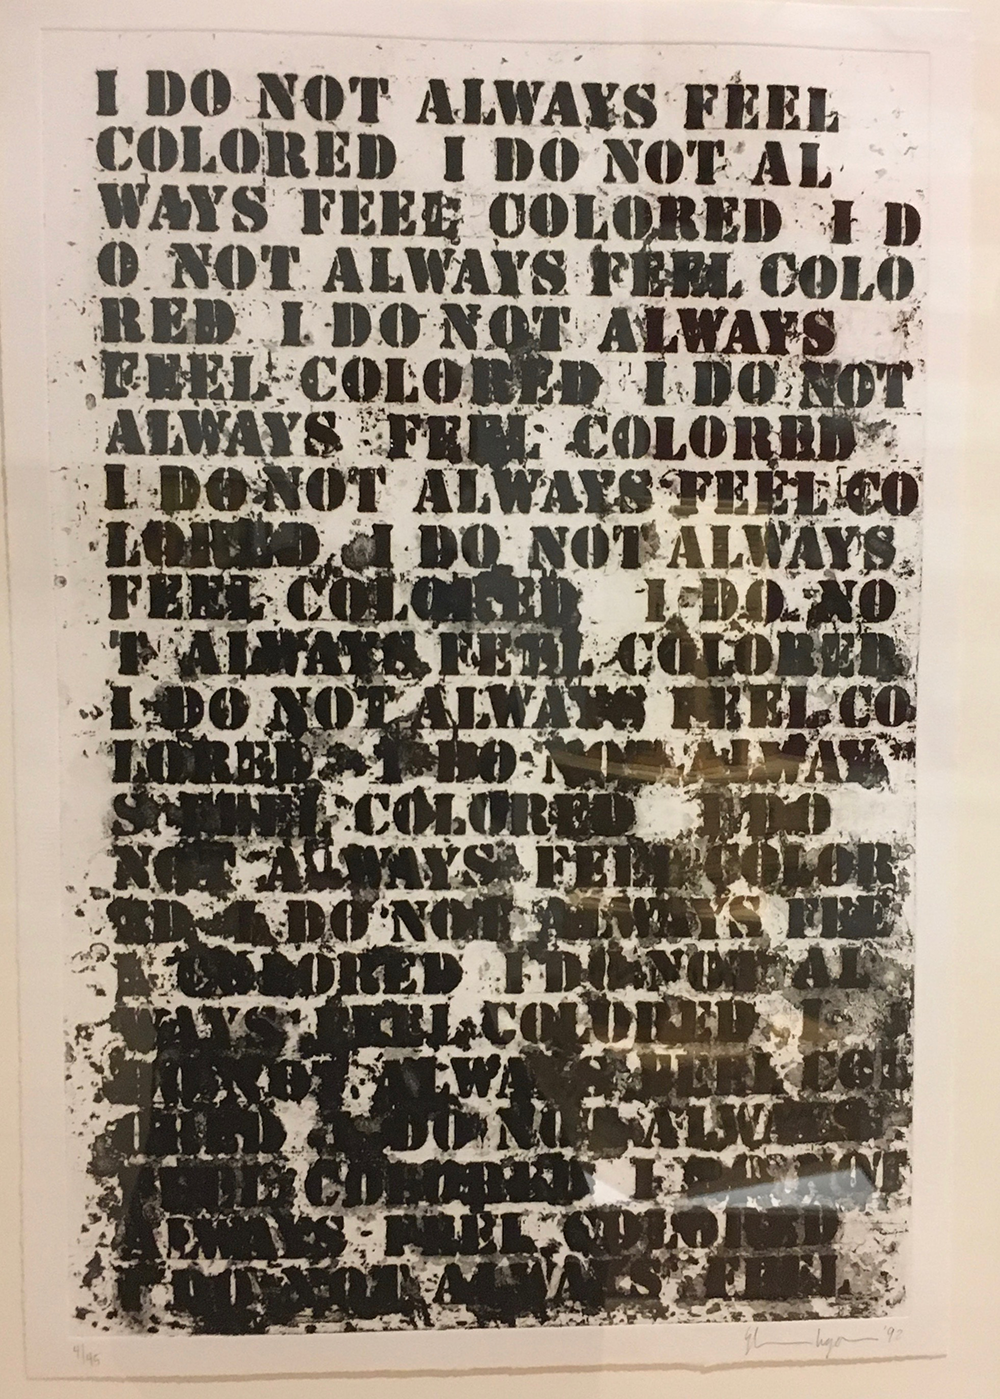 I DO NOT ALWAYS FEEL
COLORED I DO NOT AL
WAYS FEEL COLORED I D
O NOT ALWAYS FEEL COLO
RED I DO NOT ALWAYS
FEEL COLORED I DO NOT
ALWAYS FEEL COLORED
I DO NOT ALWAYS FEEL CO
LORED I DO NOT ALWAYS
FEEL COLORED I DO NO
T ALWAYS FEEL COLORED
I DO NOT ALWAYS FEEL CO
LORED I DO NOT ALWAY
S FEEL COLORED I DO
NOT ALWAYS FEEL COLOR
ED I DO NOT ALWAYS FEE
L COLORED I DO NOT AL
WAYS FEEL COLORED I
DO NOT ALWAYS FEEL COL
ORED I DO NOT ALWAYS
FEEL COLORED I DO NOT
ALWAYS FEEL COLORED
I DO NOT ALWAYS FEEL
'92